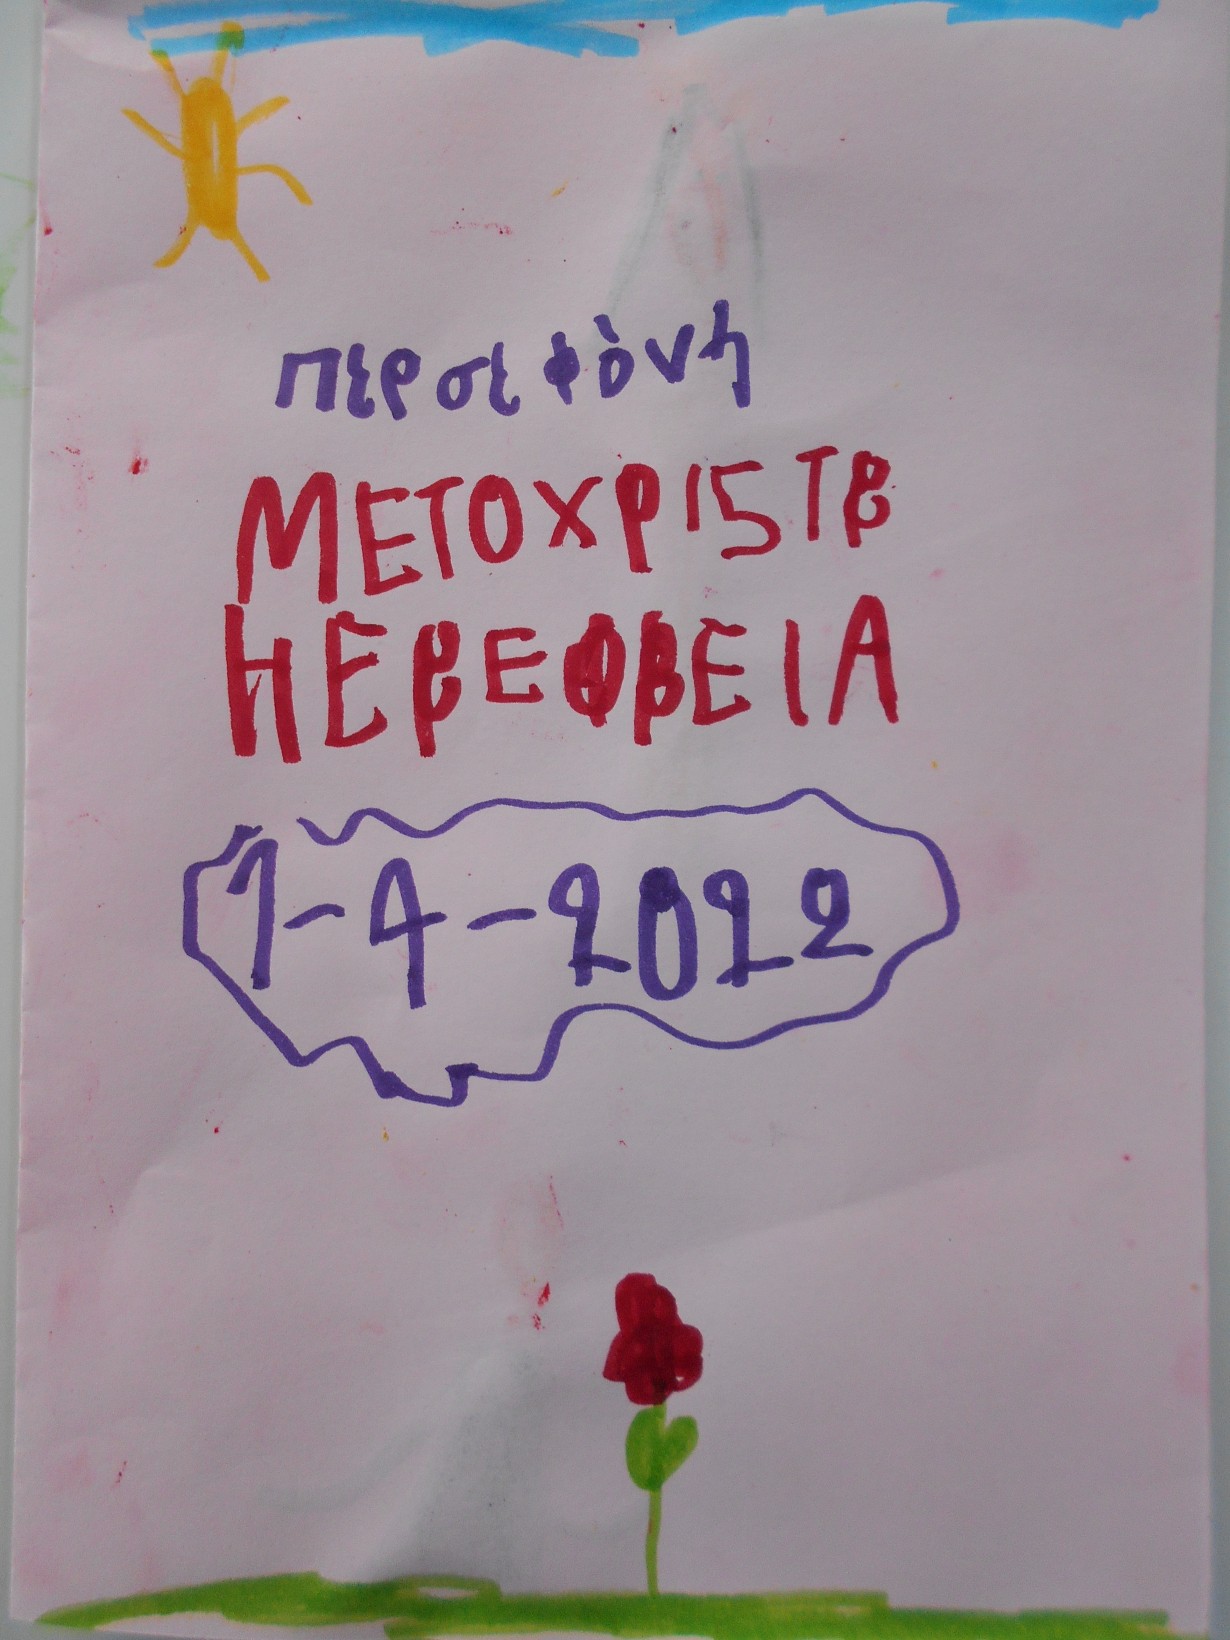 περσεφόνη
ΜΕΤΟΧΡΙ5ΤΒ
ΗΕΒΕΦΒΕΙΑ
1-4-2022